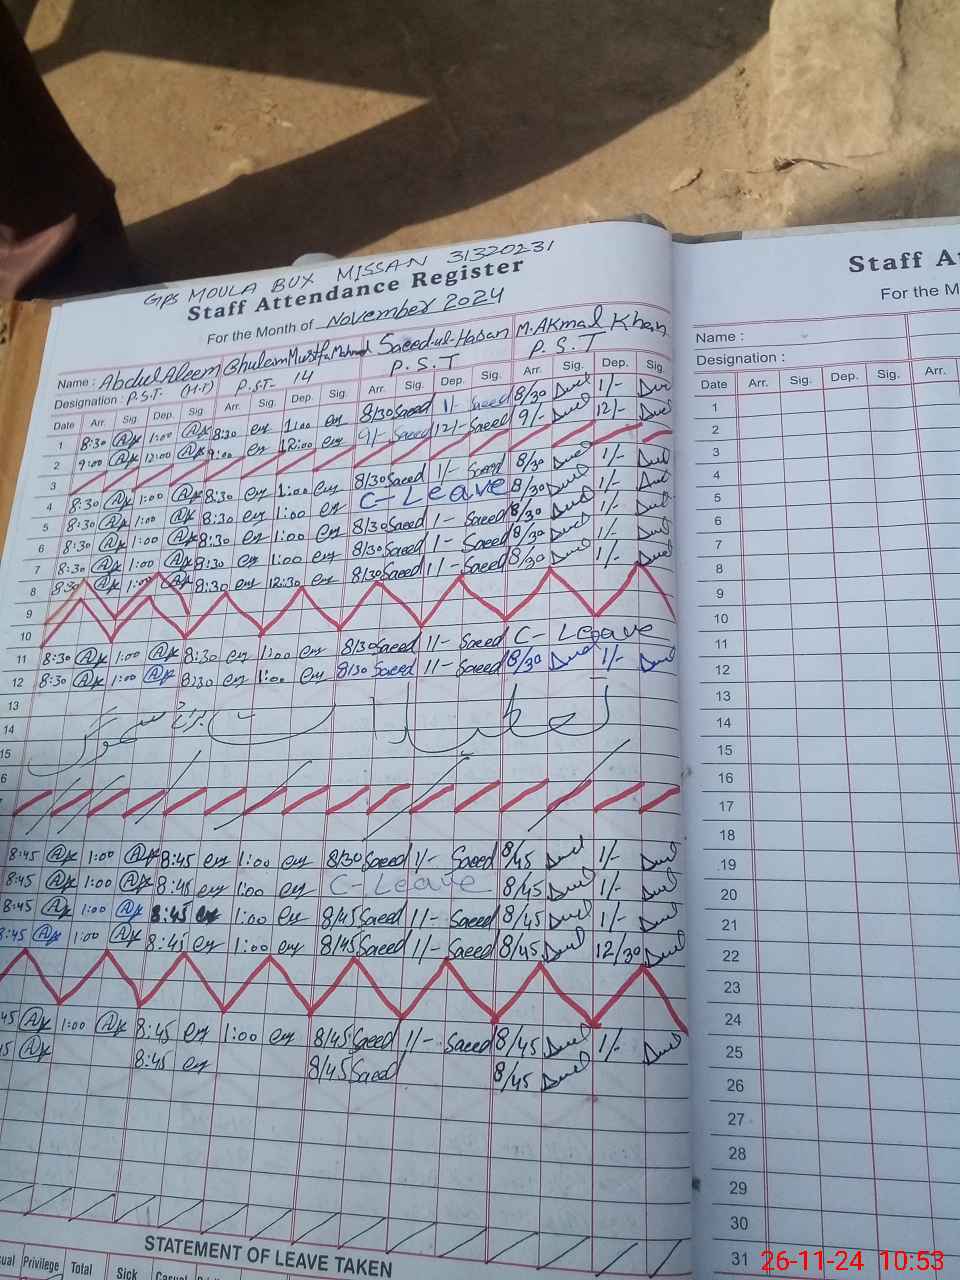 GPS MOULA BUX MISSAN 31320231
Staff Attendance Register
For the Month of November 2024
Name : Abdul Aleem Ghulam Mustfa Mahmud Saeed-ul-Hasan M. Akmal Khan
Designation : P.S.T. (H.T) P.S.T 14 P.S.T P.S.T
Date Arr. Sig. Dep. Sig. Arr. Sig. Dep. Sig. Arr. Sig. Dep. Sig. Arr. Sig. Dep. Sig.
1 8:30 1:00 8:30 1:00 8/30 Saeed 1/- Saeed 8/30 1/-
2 9:00 12:00 9:00 12:00 9/- Saeed 12/- Saeed 9/- 12/-
3
4 8:30 1:00 8:30 1:00 8/30 Saeed 1/- Saeed 8/30 1/-
5 8:30 1:00 8:30 1:00 C-Leave 8/30 1/-
6 8:30 1:00 8:30 1:00 8/30 Saeed 1- Saeed 8/30 1/-
7 8:30 1:00 8:30 1:00 8/30 Saeed 1- Saeed 8/30 1/-
8 8:30 1:00 8:30 12:30 8/30 Saeed 1/- Saeed 8/30 1/-
9
10
11 8:30 1:00 8:30 1:00 8/30 Saeed 1/- Saeed C-Leave
12 8:30 1:00 8:30 1:00 8/30 Saeed 1/- Saeed 8/30 1/-
13
14
15
6
8:45 1:00 8:45 1:00 8/30 Saeed 1/- Saeed 8/45 1/-
8:45 1:00 8:45 1:00 C-Leave 8/45 1/-
8:45 1:00 8:45 1:00 8/45 Saeed 1/- Saeed 8/45 1/-
8:45 1:00 8:45 1:00 8/45 Saeed 1/- Saeed 8/45 12/30
45 1:00 8:45 1:00 8/45 Saeed 1/- Saeed 8/45 1/-
45 8:45 8/45 Saeed 8/45
STATEMENT OF LEAVE TAKEN
ual Privilege Total Sick Casual
Staff At
For the M
Name :
Designation :
Date Arr. Sig. Dep. Sig. Arr.
1
2
3
4
5
6
7
8
9
10
11
12
13
14
15
16
17
18
19
20
21
22
23
24
25
26
27
28
29
30
31
26-11-24 10:53